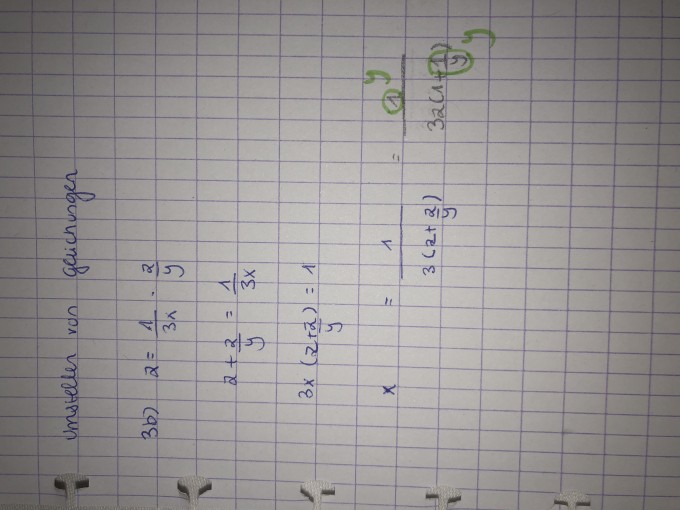 Umstellen von Gleichungen
3b) 2 = 1/3x · 2/y
2 + 2/y = 1/3x
3x (2 + 2/y) = 1
x = 1/3(2 + 2/y) = 1 y/32(1 + 1/y) y